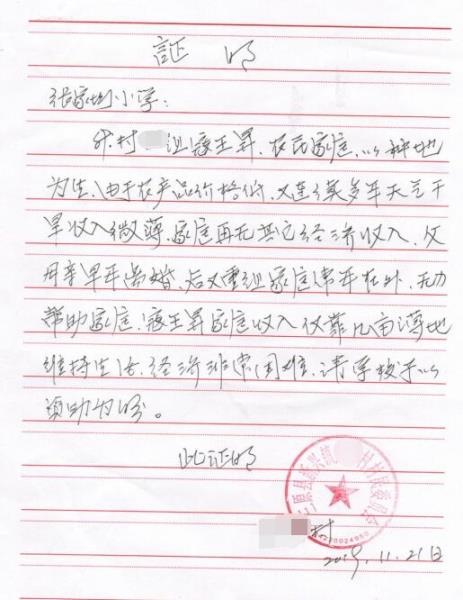 証明
张家坳小学:
我村 组寇玉昇、农民家庭,以种地
为生,由于农产品价格低,又连续多年天气干
旱收入微薄,家庭再无其它经济收入,父
母亲早年离婚,后又重组家庭常年在外,无力
帮助家庭,寇玉昇家庭收入仅靠几亩薄地
维持生活,经济非常困难,请学校予以
资助为盼。
此证明
村
2019.11.21日